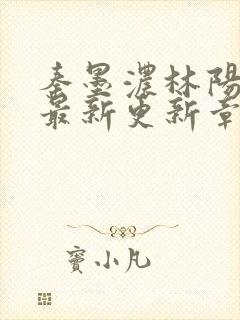 秦墨濃林陽
最新更新章
竇小凡